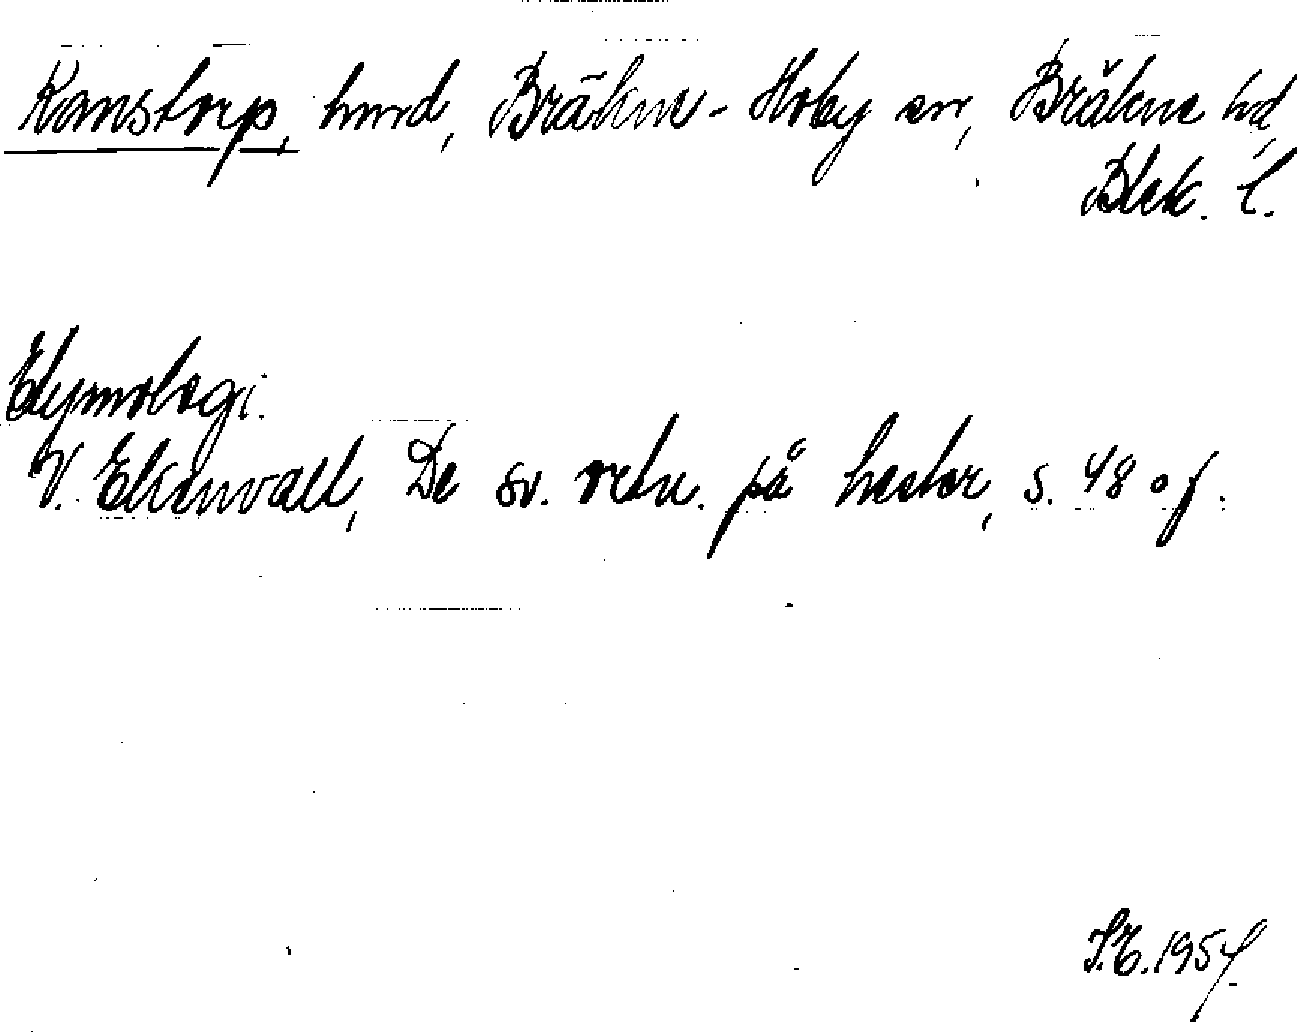 Ranstorp, hmd, Bräkne-Hoby sn, Bräkne hd,
Blek. l.
Etymologi.
V. Ekenvall, De sv. ortn. på hester, s. 48 o f.
S.E. 1954.